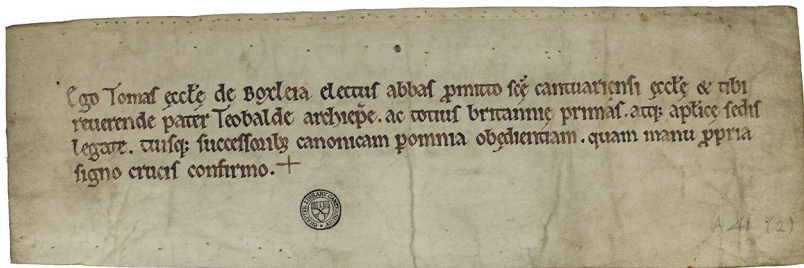 Ego Tomas ęccłę de Boxleia electus abbas ꝓmitto scę̄ cantuariensi ęccłę & tibi
reuerende pater Teobalde archiep̄e . ac totius britannie primas . atq; apl̄icę sedis
legate . tuisq; successorib; canonicam ꝑ omnia obędientiam . quam manu ꝓpria
signo crucis confirmo . +
CHAPTER LIBRARY CANTERBURY
A 41 (2)